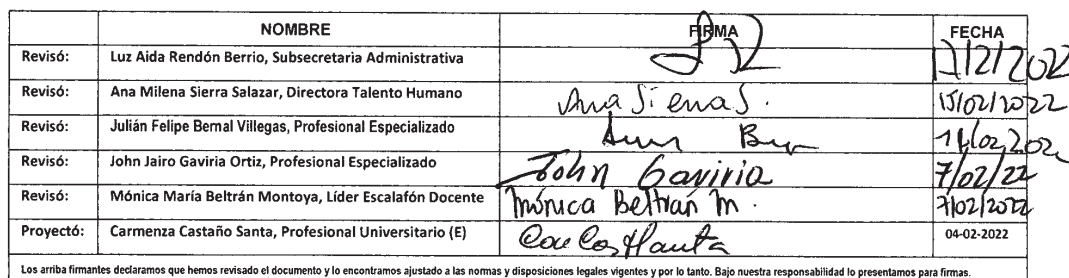 NOMBRE FIRMA FECHA
Revisó: Luz Aida Rendón Berrio, Subsecretaria Administrativa
Revisó: Ana Milena Sierra Salazar, Directora Talento Humano Ana Sierra S. 15/02/2022
Revisó: Julián Felipe Bernal Villegas, Profesional Especializado
Revisó: John Jairo Gaviria Ortiz, Profesional Especializado John Gaviria 7/02/22
Revisó: Mónica María Beltrán Montoya, Líder Escalafón Docente Mónica Beltrán M. 7/02/2022
Proyectó: Carmenza Castaño Santa, Profesional Universitario (E) 04-02-2022
Los arriba firmantes declaramos que hemos revisado el documento y lo encontramos ajustado a las normas y disposiciones legales vigentes y por lo tanto. Bajo nuestra responsabilidad lo presentamos para firmas.